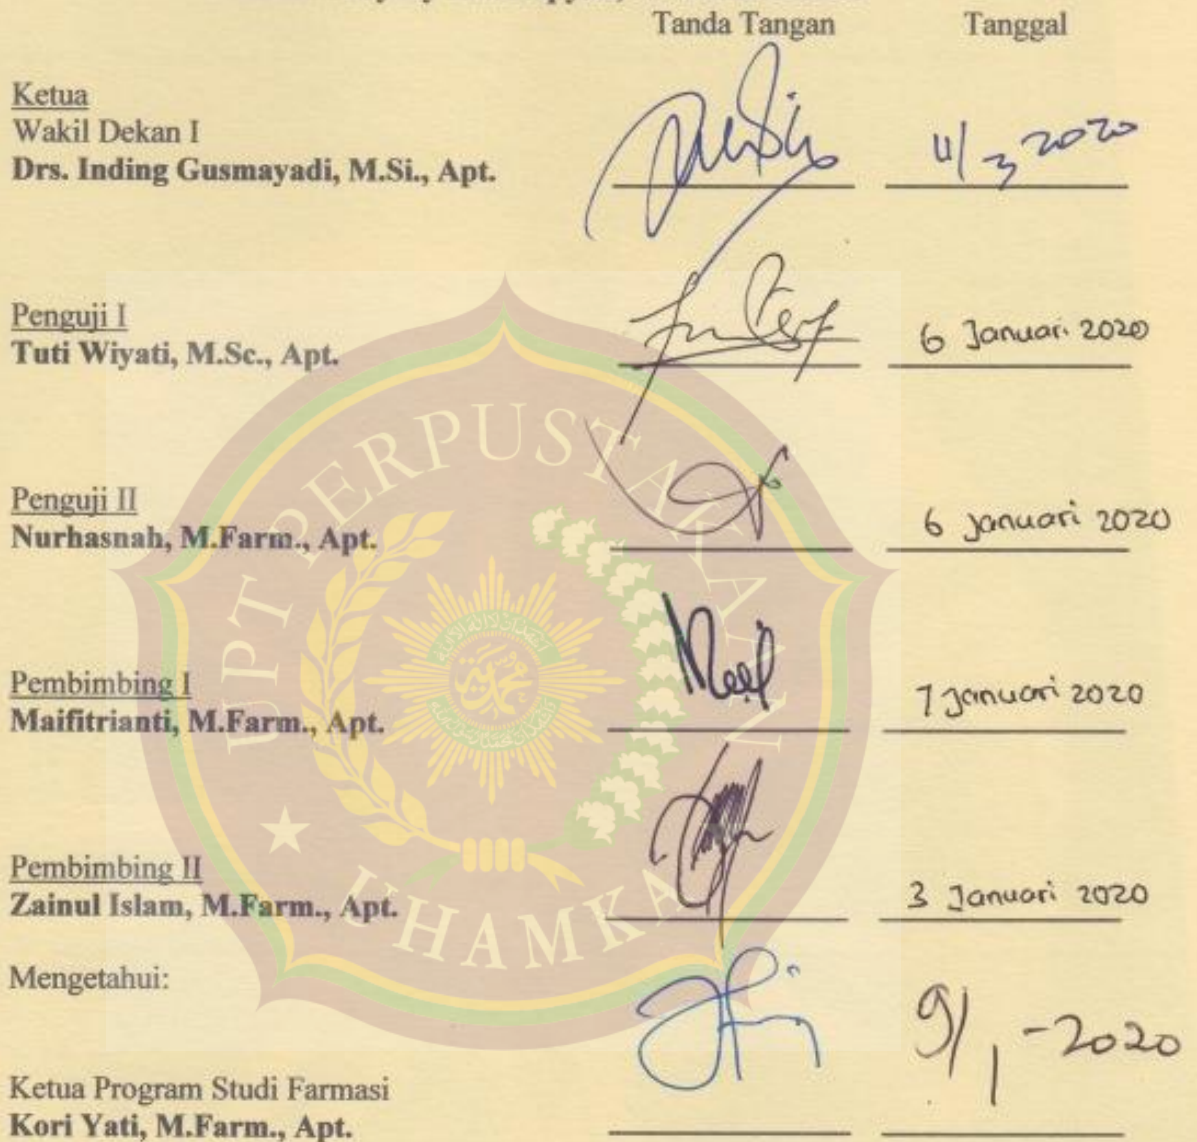 Tanda Tangan Tanggal
Ketua
Wakil Dekan I
Drs. Inding Gusmayadi, M.Si., Apt.
11/3 2020
Penguji I
Tuti Wiyati, M.Sc., Apt.
6 Januari 2020
Penguji II
Nurhasnah, M.Farm., Apt.
6 Januari 2020
Pembimbing I
Maifitrianti, M.Farm., Apt.
7 Januari 2020
Pembimbing II
Zainul Islam, M.Farm., Apt.
3 Januari 2020
Mengetahui:
9/1-2020
Ketua Program Studi Farmasi
Kori Yati, M.Farm., Apt.
UPT PERPUSTAKAAN
UHAMKA